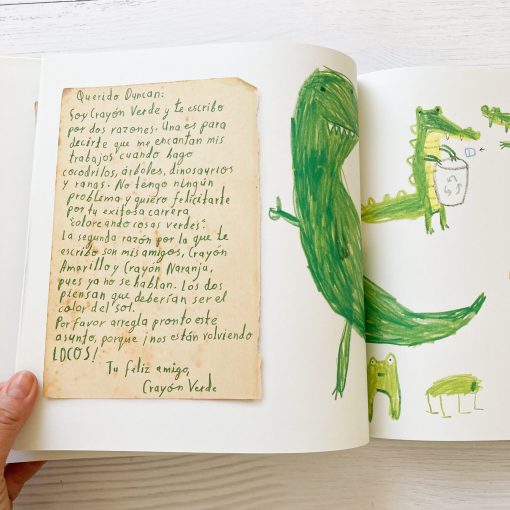 Querido Duncan:
Soy Crayón Verde y te escribo
por dos razones. Una es para
decirte que me encantan mis
trabajos cuando hago
cocodrilos, árboles, dinosaurios
y ranas. No tengo ningún
problema y quiero felicitarte
por tu exitosa carrera
"coloreando cosas verdes".
La segunda razón por la que te
escribo son mis amigos, Crayón
Amarillo y Crayón Naranja,
pues ya no se hablan. Los dos
piensan que deberían ser el
color del sol.
Por favor arregla pronto este
asunto, porque ¡nos están volviendo
LOCOS!
Tu feliz amigo,
Crayón Verde